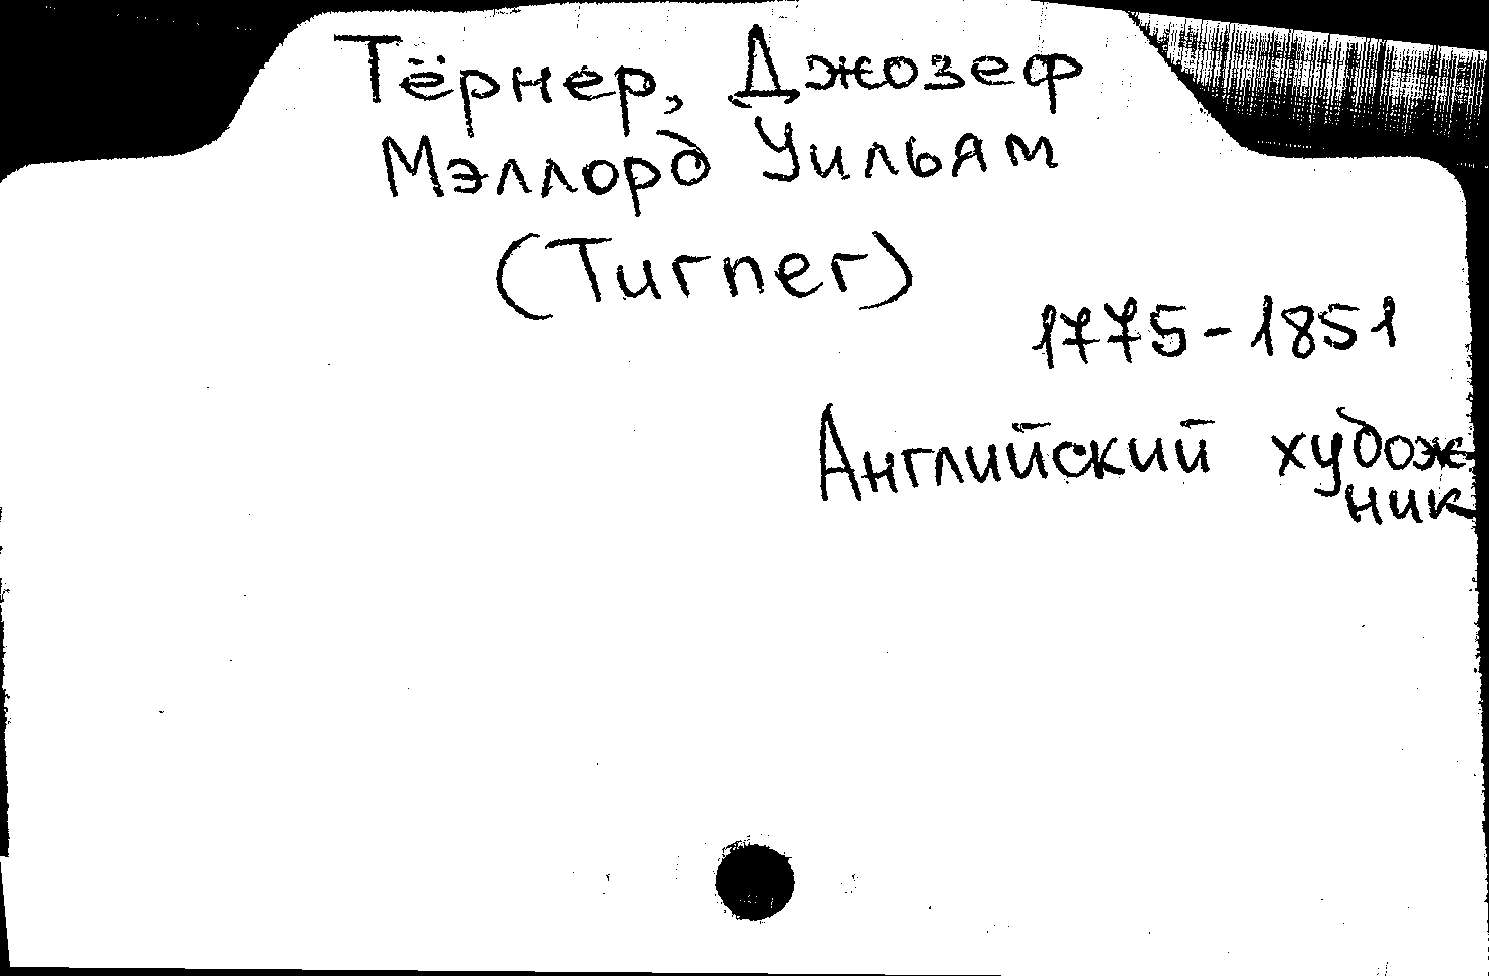 Тёрнер, Джозеф
Мэллорд Уильям
(Turner)
1775-1851
Английский худож-
ник